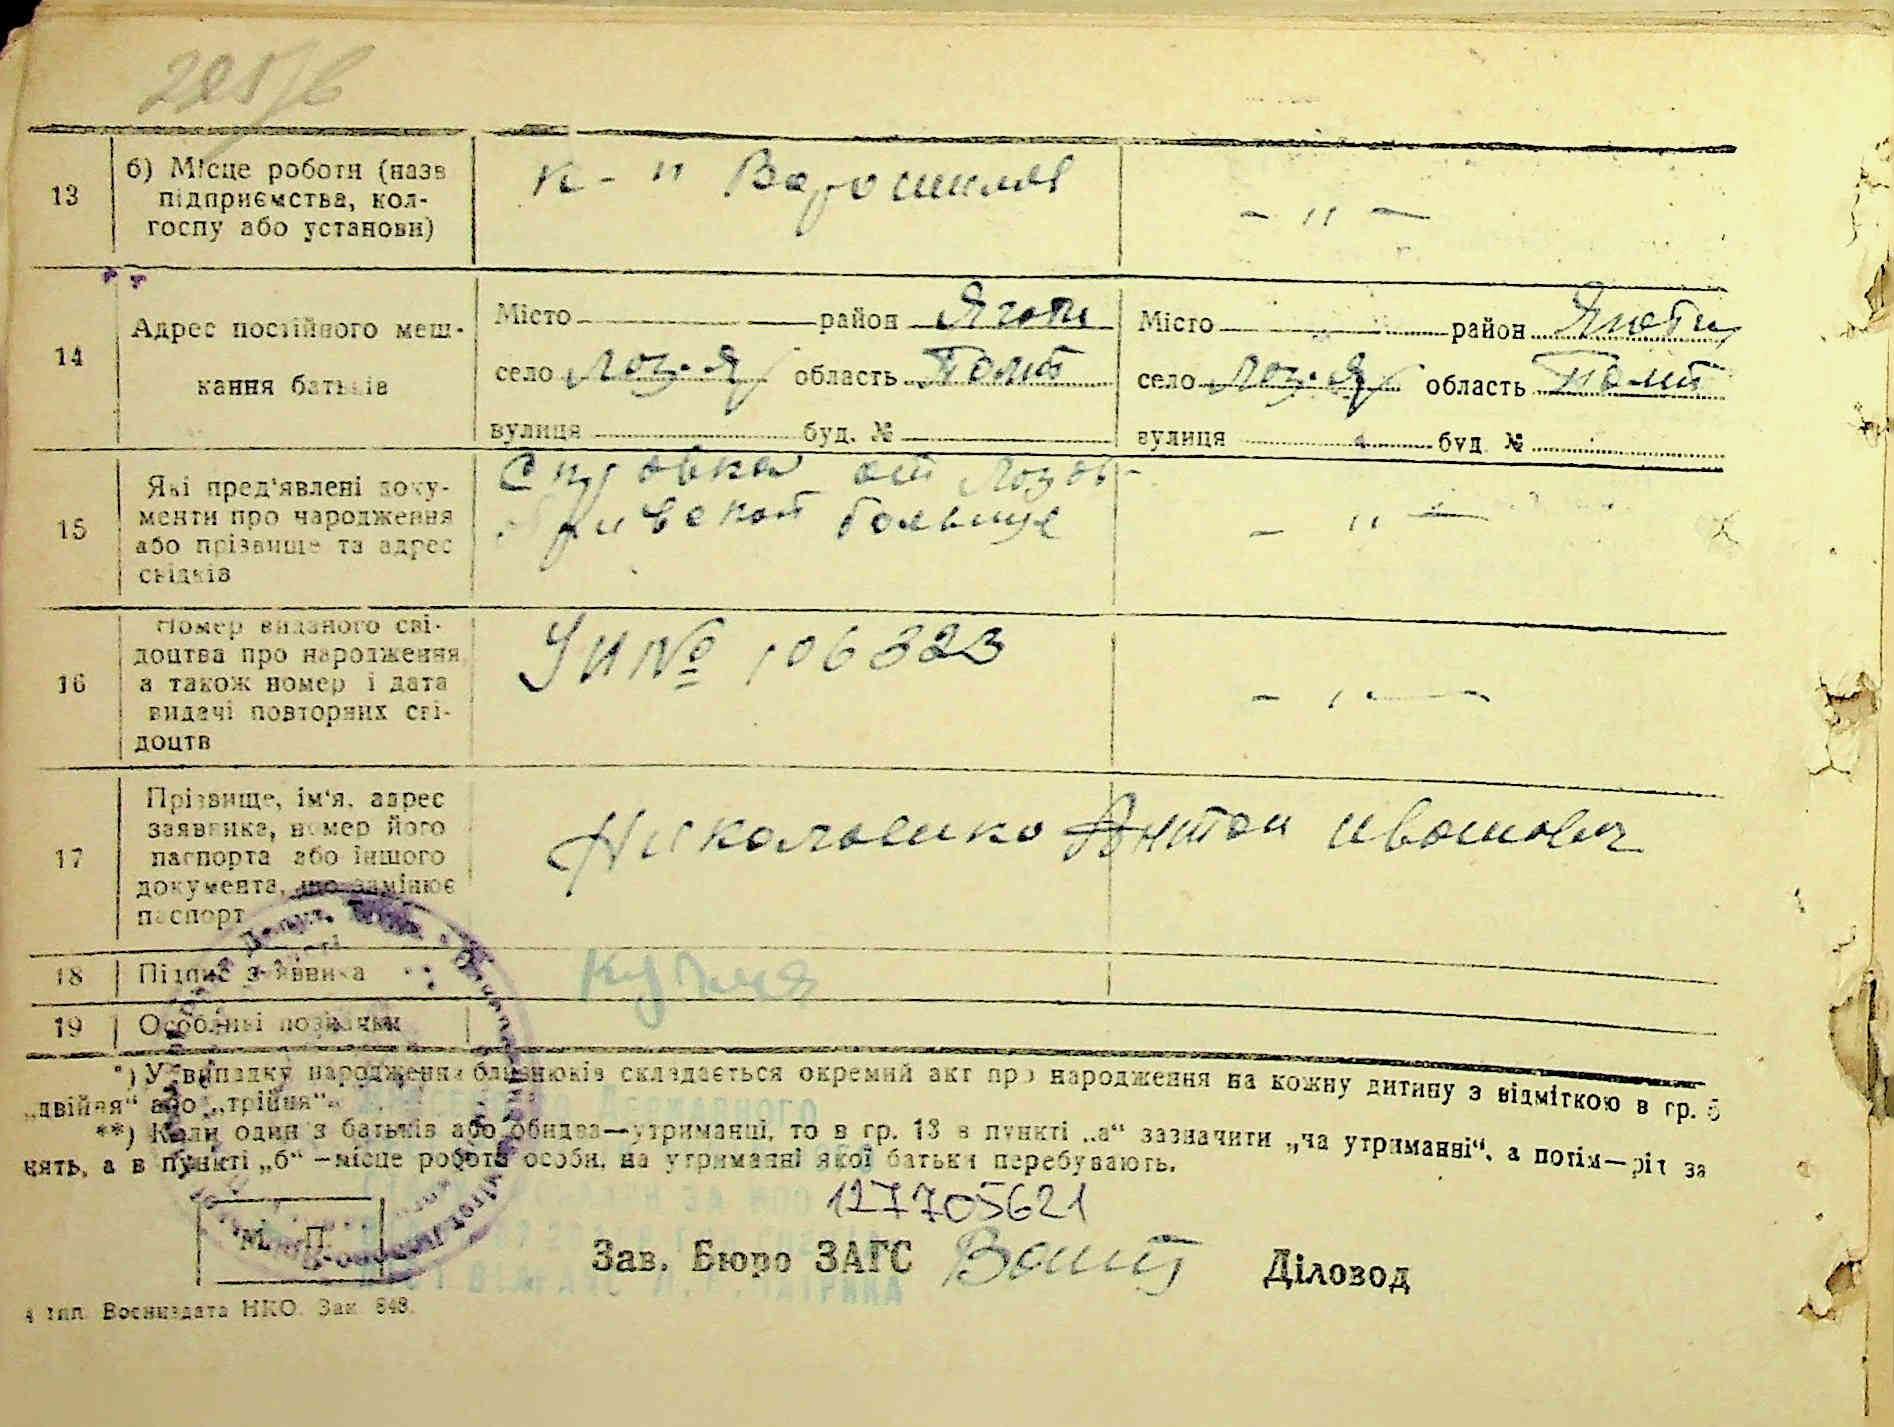 225/в
13
б) Місце роботи (назв
підприємства, кол-
госпу або установи)
к-" Ворошилов
- " -
14
Адрес постійного меш-
кання батьків
Місто район Яготи
село Лоз.-Я область Полт
вулиця буд. №
Місто район Яготи
село Лоз.-Я область Полт
вулиця буд. №
15
Які пред'явлені доку-
менти про народження
або прізвище та адрес
свідків
Справка от Лозов-
больнице
- " -
16
Номер виданого сві-
доцтва про народження
а також номер і дата
видачі повторних сві-
доцтв
УИ № 106323
- " -
17
Прізвище, ім'я, адрес
заявника, номер його
паспорта або іншого
документа, що замінює
паспорт
Николаенко Антон Иванович
18
Підпис заявника
19
Особливі познаки
*) У випадку народження близнюків складається окремий акт про народження на кожну дитину з відміткою в гр. 5
„двійня“ або „трійня“.
**) Коли один з батьків або обидва—утриманці, то в гр. 13 в пункті „а“ зазначити „на утриманні“, а потім—рід за
нять, а в пункті „б“ —місце роботи особи, на утриманні якої батьки перебувають.
127705621
М. П.
Зав. Бюро ЗАГС
Діловод
4 тип. Воениздата НКО. Зак. 843.